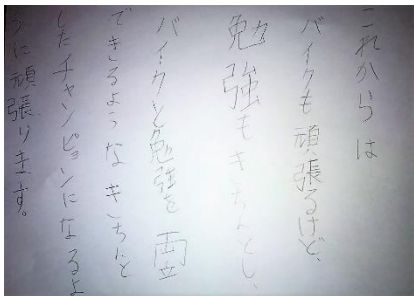 これからは
バイクも頑張るけど、
勉強もきちんとし、
バイクと勉強を両立
できるようなきちんと
したチャンピオンになるよ
うに頑張ります。